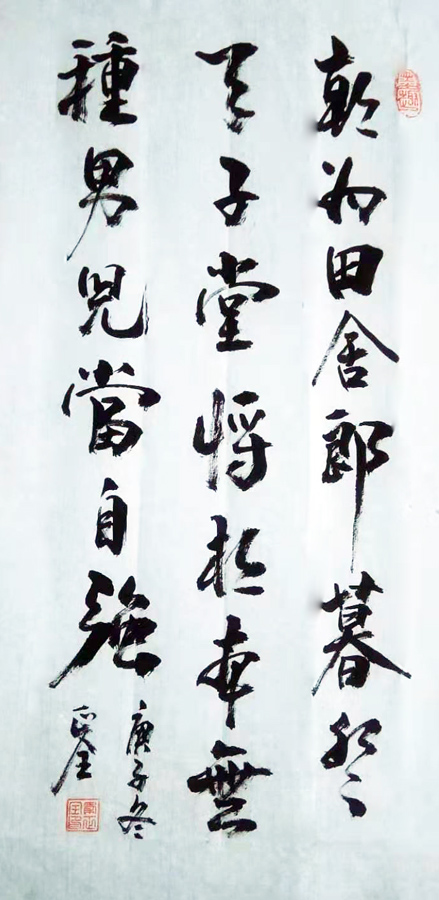 朝为田舍郎暮登
天子堂将相本無
種男兒當自強
庚子冬